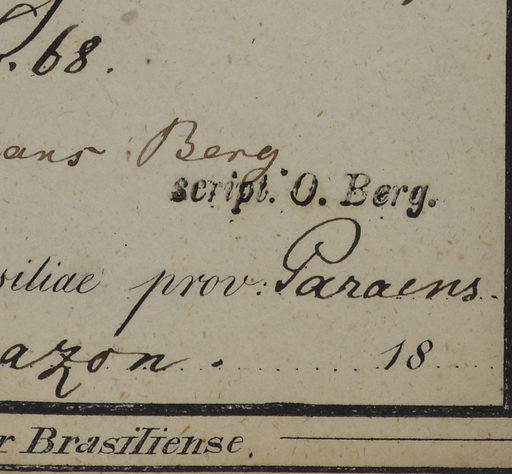 . 68.
ans Berg
script. O. Berg.
siliae prov: Paraens.
azon. 18
r Brasiliense.